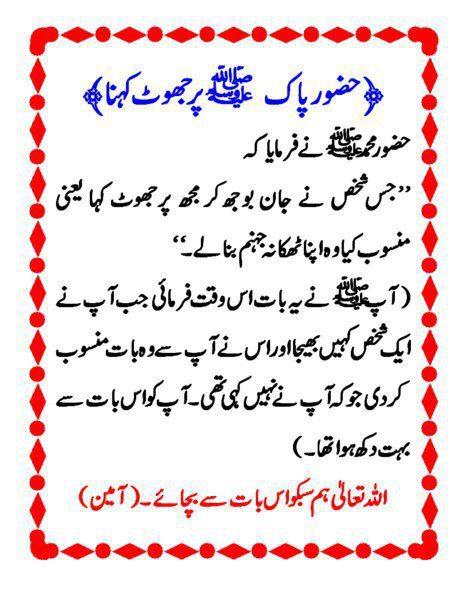 ﴿حضور پاک ﷺ پر جھوٹ کہنا﴾
حضور محمدﷺ نے فرمایا کہ
’’جس شخص نے جان بوجھ کر مجھ پر جھوٹ کہا یعنی
منسوب کیا وہ اپنا ٹھکانہ جہنم بنالے۔‘‘
(آپﷺ نے یہ بات اس وقت فرمائی جب آپ نے
ایک شخص کہیں بھیجا اور اس نے آپ سے وہ بات منسوب
کردی جو کہ آپ نے نہیں کہی تھی۔ آپ کو اس بات سے
بہت دکھ ہوا تھا۔)
اللہ تعالیٰ ہم سبکو اس بات سے بچائے۔(آمین)